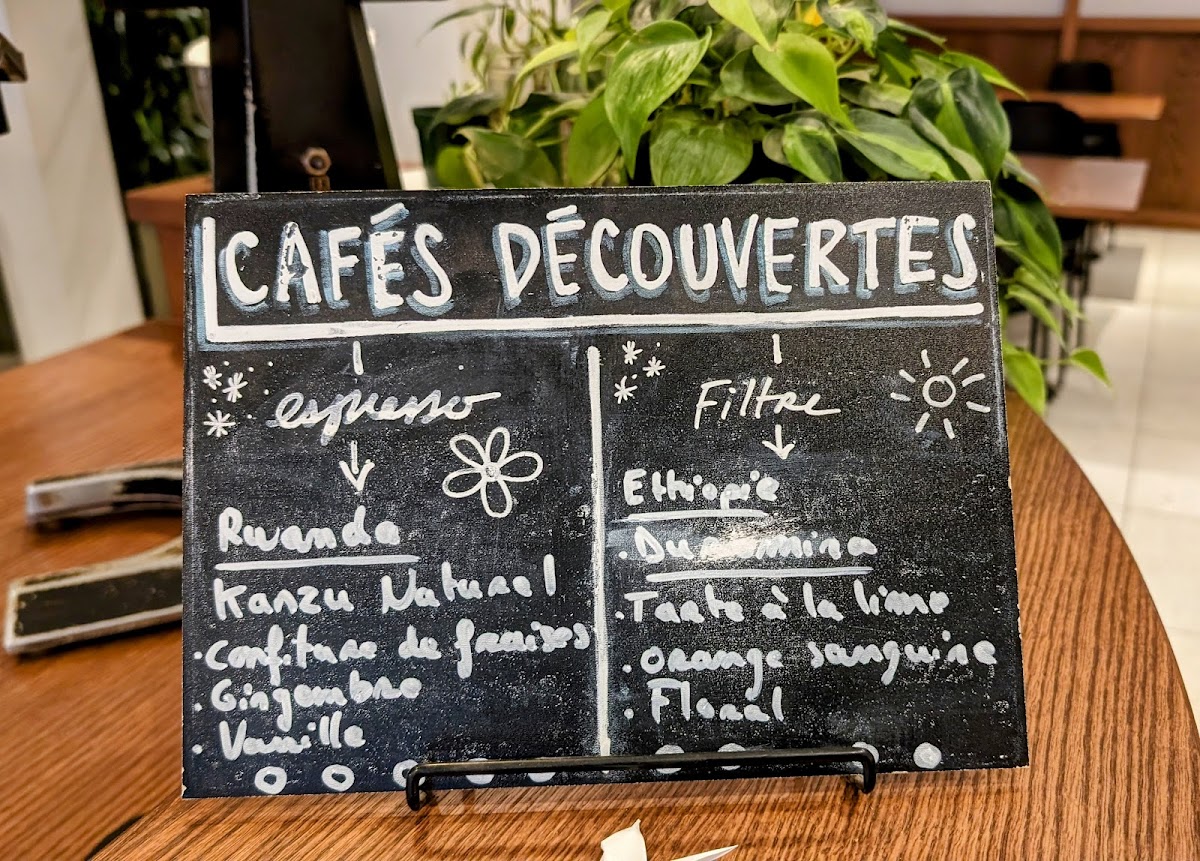 CAFÉS DÉCOUVERTES
espresso
Rwanda
Kanzu Natural
· Confiture de fraises
· Gingembre
· Vanille
Filtre
Ethiopie
· Tarte à la lime
· Orange sanguine
· Floral